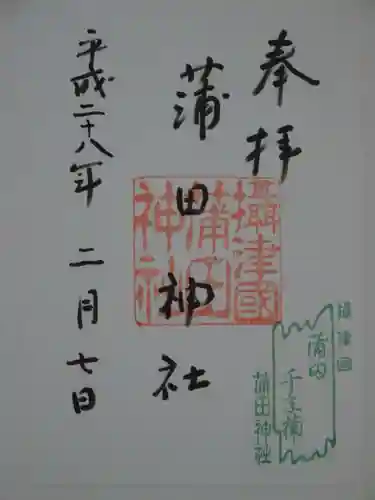 奉拝
蒲田神社
平成二十八年 二月七日
攝津國
蒲田
神社
摂津国
蒲田神社